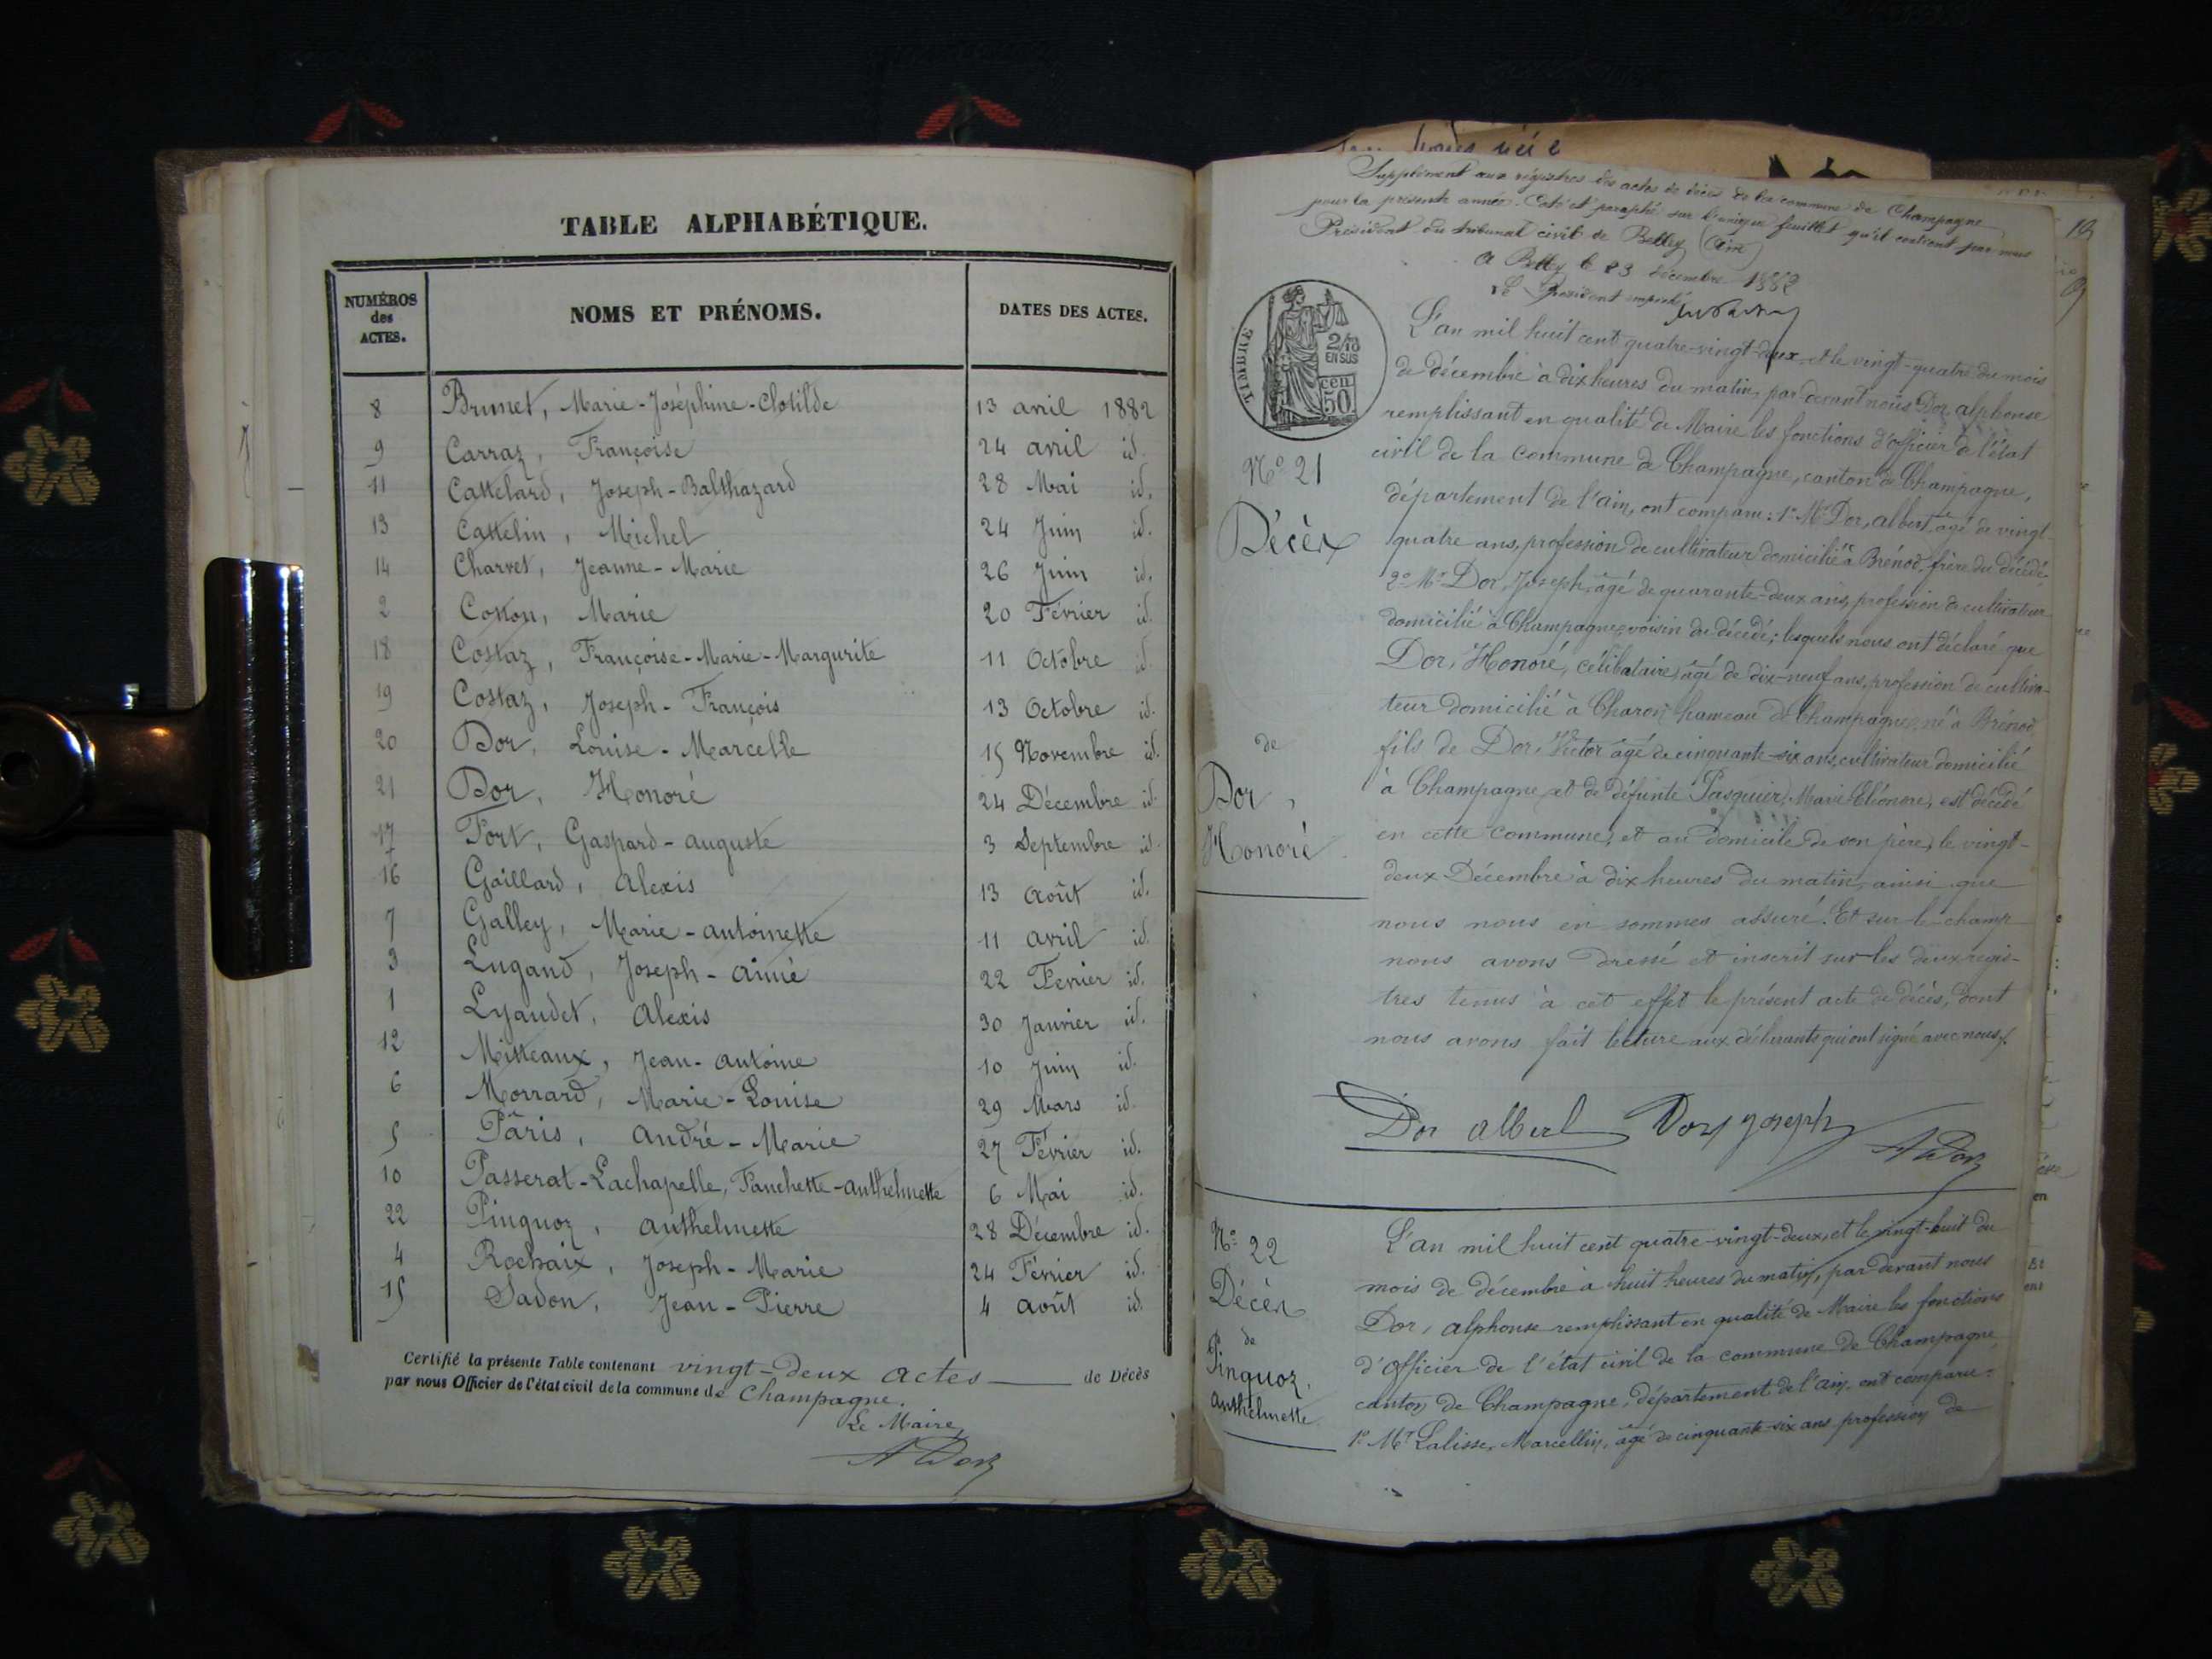 TABLE ALPHABÉTIQUE.
NUMÉROS des ACTES. NOMS ET PRÉNOMS. DATES DES ACTES.
8 Brunet, Marie-Joséphine-Clotilde 13 avril 1882
9 Carraz, Françoise 24 avril id.
11 Cattelard, Joseph-Balthazard 28 Mai id.
13 Cattelin, Michel 24 Juin id.
14 Charvet, Jeanne-Marie 26 Juin id.
2 Cotton, Marie 20 Février id.
18 Costaz, Françoise-Marie-Margurite 11 Octobre id.
19 Costaz, Joseph-François 13 Octobre id.
20 Dor, Louise-Marcelle 15 Novembre id.
21 Dor, Honoré 24 Décembre id.
17 Fort, Gaspard-auguste 3 Septembre id.
16 Gaillard, Alexis 13 août id.
7 Galley, Marie-antoinette 11 avril id.
3 Lugand, Joseph-aimé 22 Fevrier id.
1 Lyaudet, Alexis 30 Janvier id.
12 Mitteaux, Jean-antoine 10 Juin id.
6 Morrard, Marie-Louise 29 Mars id.
5 Pâris, andré-Marie 27 Février id.
10 Passerat-Lachapelle, Fanchette-anthelmette 6 Mai id.
22 Pinguoz, anthelmette 28 Décembre id.
4 Rochaix, Joseph-Marie 24 Février id.
15 Sadon, Jean-Pierre 4 août id.
Certifié la présente Table contenant vingt-deux actes de Décès
par nous Officier de l'état civil de la commune de Champagne.
Le Maire,
A Dor
Supplément aux régistres des actes de décès de la commune de Champagne
pour la présente année. Coté et paraphé sur l'unique feuillet qu'il contient par nous
Président du tribunal civil de Belley (Ain)
A Belley le 23 décembre 1882
Le Président empeché
TIMBRE
2/10
EN SUS
cen
50
L'an mil huit cent quatre-vingt-deux et le vingt-quatre du mois
de décembre à dix heures du matin, par devant nous Dor, alphonse
remplissant en qualité de Maire les fonctions d'officier de l'état
civil de la Commune de Champagne, canton de Champagne,
département de l'ain, ont comparu: 1° Mr Dor, albert, âgé de vingt-
quatre ans, profession de cultivateur domicilié à Brénod, frère du décédé;
2° Mr Dor, Joseph, âgé de quarante-deux ans, profession de cultivateur
domicilié à Champagne, voisin du décédé; lesquels nous ont déclaré que
Dor, Honoré, célibataire, âgé de dix-neuf ans, profession de cultiva-
teur domicilié à Charon, hameau de Champagne, né à Brénod
fils de Dor, Victor âgé de cinquante-six ans, cultivateur domicilié
à Champagne, et de défunte Pasquier, Marie Eléonore, est décédé
en cette commune, et au domicile de son père, le vingt-
deux Décembre à dix heures du matin, ainsi que
nous nous en sommes assuré. Et sur-le-champ
nous avons dressé et inscrit sur les deux regis-
tres tenus à cet effet le présent acte de décès, dont
nous avons fait lecture aux déclarants qui ont signé avec nous.
N° 21
Décès
de
Dor,
Honoré
Dor albert Dor joseph
A Dor
N° 22
Décès
de
Pinguoz,
anthelmette
L'an mil huit cent quatre-vingt-deux, et le vingt-huit du
mois de décembre à huit heures du matin, par devant nous
Dor, alphonse remplissant en qualité de Maire les fonctions
d'officier de l'état civil de la commune de Champagne,
canton de Champagne, département de l'ain, ont comparu:
1° Mr Lalisse, Marcellin, âgé de cinquante-six ans profession de